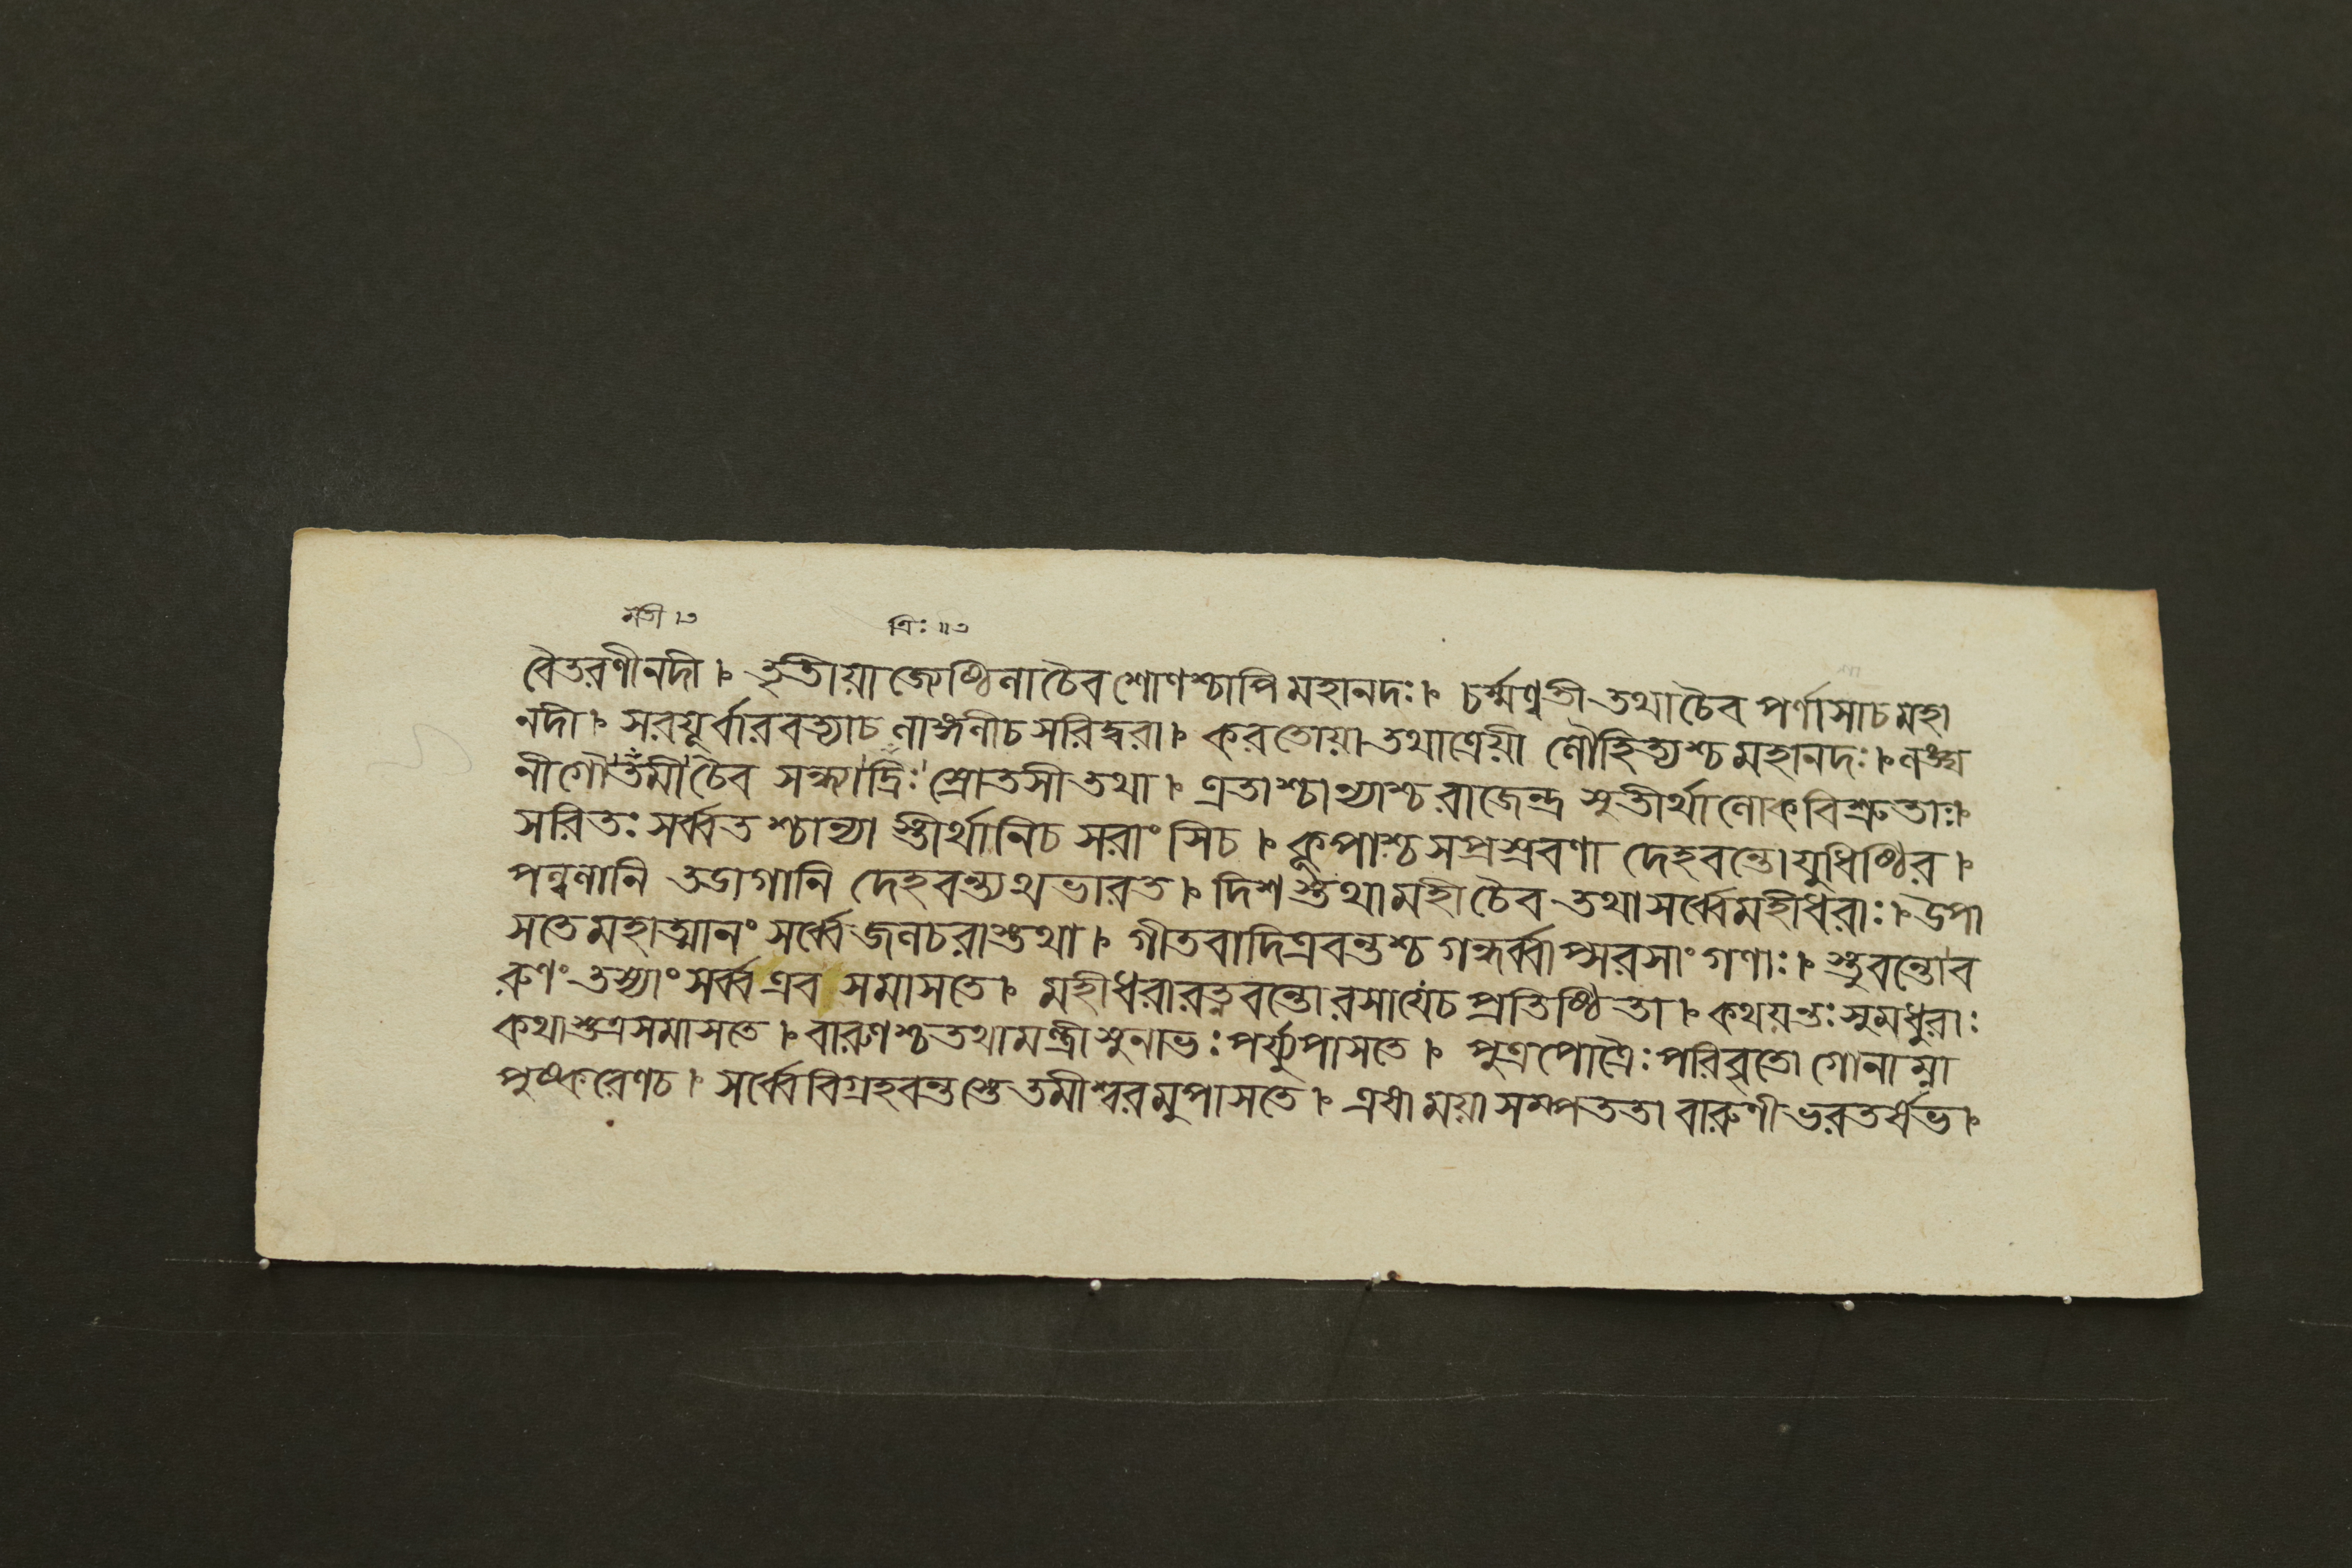 মতী ।৩ ত্রিঃ ॥৩
বৈতরণীনদী । তৃতীয়া জ্যেষ্ঠিলা চৈব শোণশ্চাপি মহানদঃ । চর্ম্মণ্বতী তথা চৈব পর্ণাসা চ মহা
নদী । সরযূর্বারবত্যাচ লাঙ্গলীচ সরিদ্বরা । করতোয়া তথাত্রেয়ী লৌহিত্যশ্চ মহানদঃ । লঙ্ঘ
নী গৌতমী চৈব সন্ধ্যাদ্রিঃ স্রোতসী তথা । এতাশ্চান্যাশ্চ রাজেন্দ্র সুতীর্থা লোকবিশ্রুতাঃ ।
সরিতঃ সর্ব্বতশ্চান্যা স্তীর্থানিচ সরাংসিচ । কূপাশ্চ সপ্রশ্রবণা দেহবন্তো যুধিষ্ঠির ।
পল্বলানি তডাগানি দেহবন্ত্যথ ভারত । দিশস্তথা মহী চৈব তথা সর্ব্বে মহীধরাঃ । উপা
সতে মহাত্মানং সর্ব্বে জলচরাস্তথা । গীতবাদিত্রবন্তশ্চ গন্ধর্ব্বাপ্সরসাং গণাঃ । স্তুবন্তো ব
রুণং তস্যাং সর্ব্ব এব সমাসতে । মহীধরা রত্নবন্তো রসা যেচ প্রতিষ্ঠিতা । কথয়ন্তঃ সুমধুরাঃ
কথাস্তত্র সমাসতে । বারুণশ্চ তথা মন্ত্রী সুনাভঃ পর্য্যুপাসতে । পুত্রপৌত্রৈঃ পরিবৃতো গোনাম্না
পুষ্করেণচ । সর্ব্বে বিগ্রহবন্তস্তে তমীশ্বরমুপাসতে । এষা ময়া সম্পততা বারুণী ভরতর্ষভ ।